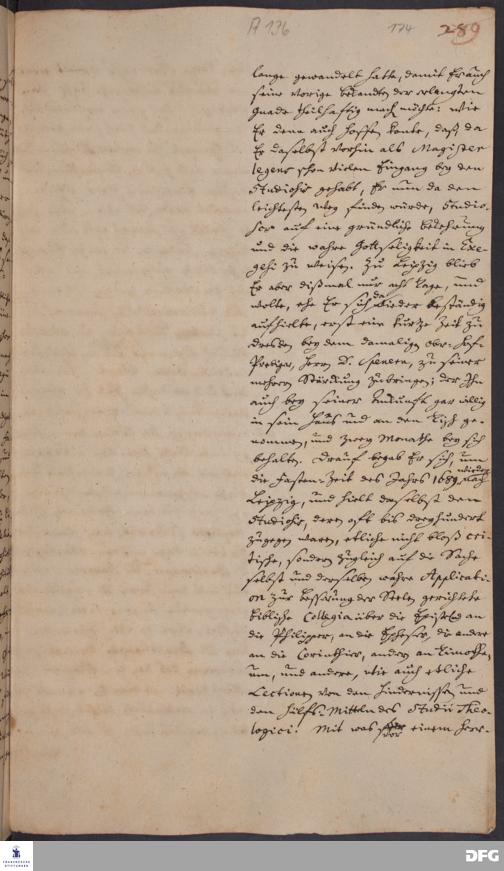 A 136
174
289
lange gewandelt hatte, damit Er auch
seine vorige bekandten der erlangten
Gnade theilhafftig mach[en] möchte: wie
Er denn auch hoffen konte, daß, da
Er daselbst vorhin als Magister
legens schon vielen Eingang bey den
Studiosis gehabt, Er nun da den
leichtesten Weg finden würde, Studio-
sos auf eine gründliche bekehrung
und die wahre Gottseligkeit in Exe-
gesi zu weisen. Zu Leipzig blieb
Er aber dißmal nur acht tage, und
wolte, ehe Er sich da wieder beständig
aufhielte, erst eine kurtze Zeit zu
Dresden bey dem damaligen Ober-Hof-
Prediger, Herrn D. Spenern, zu seiner
mehrern Stärckung zubringen; der Ihn
auch bey seiner Ankunfft gar willig
in sein Hauß und an den Tisch ge-
nommen, und zwey Monathe bey sich
behalten. Drauf begab Er sich um
die Fasten-Zeit des Jahrs 1689. wieder nach
Leipzig, und hielt daselbst den
Studiosis, deren oft bis dreyhundert
zugegen waren, etliche nicht bloß cri-
tische, sondern zugleich auf die Sache
selbst und derselben wahre Applicati-
on zur besserung der Seelen gerichtete
biblische Collegia über die Epistel an
die Philipper, an die Epheser, die andre
an die Corinthier, andre an Timothe-
um, und andere, wie auch etliche
Lectiones von den Hindernissen und
den Hülfs-Mitteln des Studii Theo-
logici. Mit was vor einem herr-
FRANCKESCHE
STIFTUNGEN
DFG